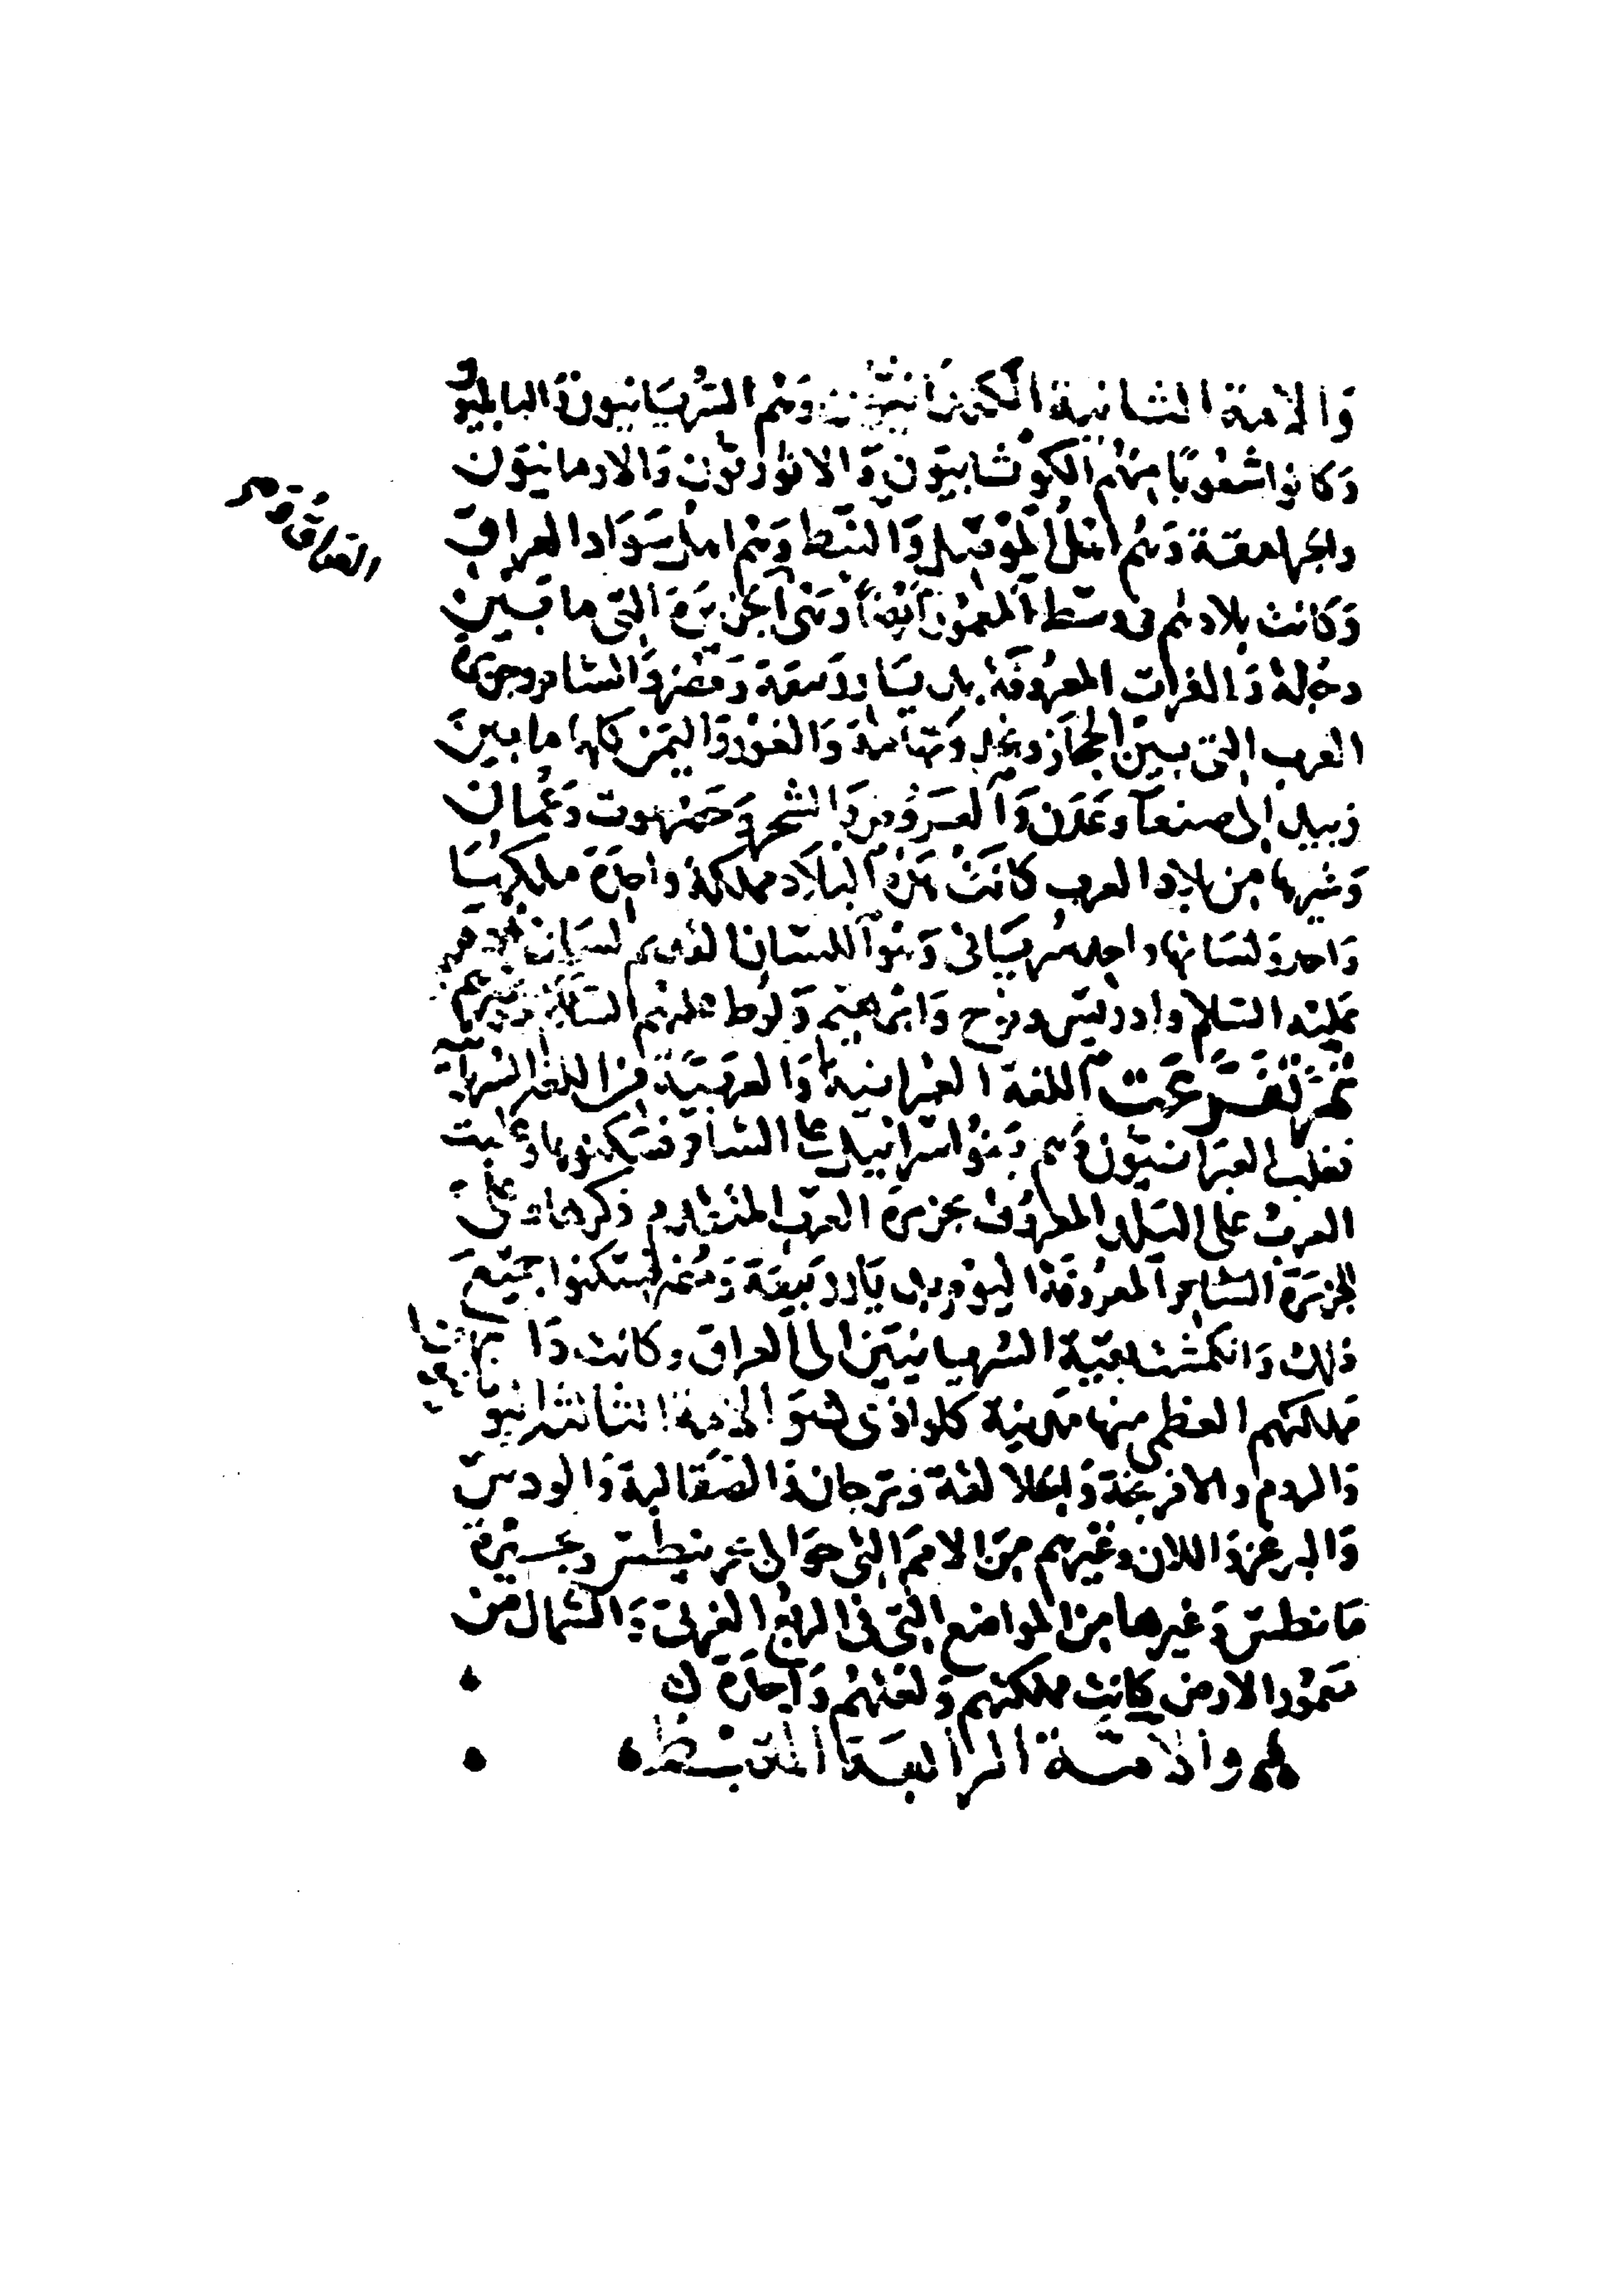 وَالامة الثانية الكلدانيّون وَهم السُّريَانيون وَالبابليو
وَكانوا شعُوبًا منهُم الكوثابيّون وَالاثوريّون وَالارمانيّون
والجرامقة وَهُم اهْلُ المَوْصِل وَالنبَط وَهُم اهل سَوَاد العراق
وَكانت بلادهم في وسَط المعمُور ايضًا وَهي الجزيرَة التي ما بَين
دجلة وَالفرات المعرُوفَة بديَار رَبيعَة وَمُضر وَالشام وجزيرة
العرب التي بين الحجَاز ونجد وَتهامَة وَالغَوْر وَاليمَن كلها ما بينَ
زبيد الى صنعَآ وَعَدَن وَالعَرُوض وَالشحر وَحَضرموت وَعُمان
وَغيرها من بلاد العرب كانَتْ هَذِه البلاَد مملكة واحِدَة ملكها
وَاحد وَلسَانها واحد سُريَاني وَهُوَ اللسَان القديم لسَان آدم
عليْه السَّلام وادريسَ ونوح وَابرٰهيم وَلُوط عليْهم السَّلام وَغيرهم
ثم تفَرَّعَت اللغة العبْرانية وَالعربيَّة من اللغة السُّريانية
فغلب العبرَانيّون وَهم بَنُو اسْرائيل على الشام فسَكنوها وغلبت
العربُ على البلد المعرُوف بجزيرة العرب المتقدم ذكرها وعلى
الجزيرَة الشام المعرُوفة اليَوْم بديَار رَبيعَة وَمُضر فسَكنوا جميْعَ
ذلك وَانكمشت بقيّة السّريانيّين الى العراق وكانت دَار
مملكتهم العظمى منها مَدينة كلواذى هو الامة الثالثة اليو
وَالروم والافرنجة وَالجلالقة وَترجان وَالصَّقالبة وَالروس
وَالبرغز وَاللان وغَيرهم مِنَ الامَم التي حوَالى بحر نيطس وبحيْرة
مَانطس وَغيرها مِن المواضع التي في الرُّبع الغربيّ وَالشمال من
مَعمُور الارض كانت مملكتهم وَلغتهُم وَاحدَة
والامّة الرابعة القبط